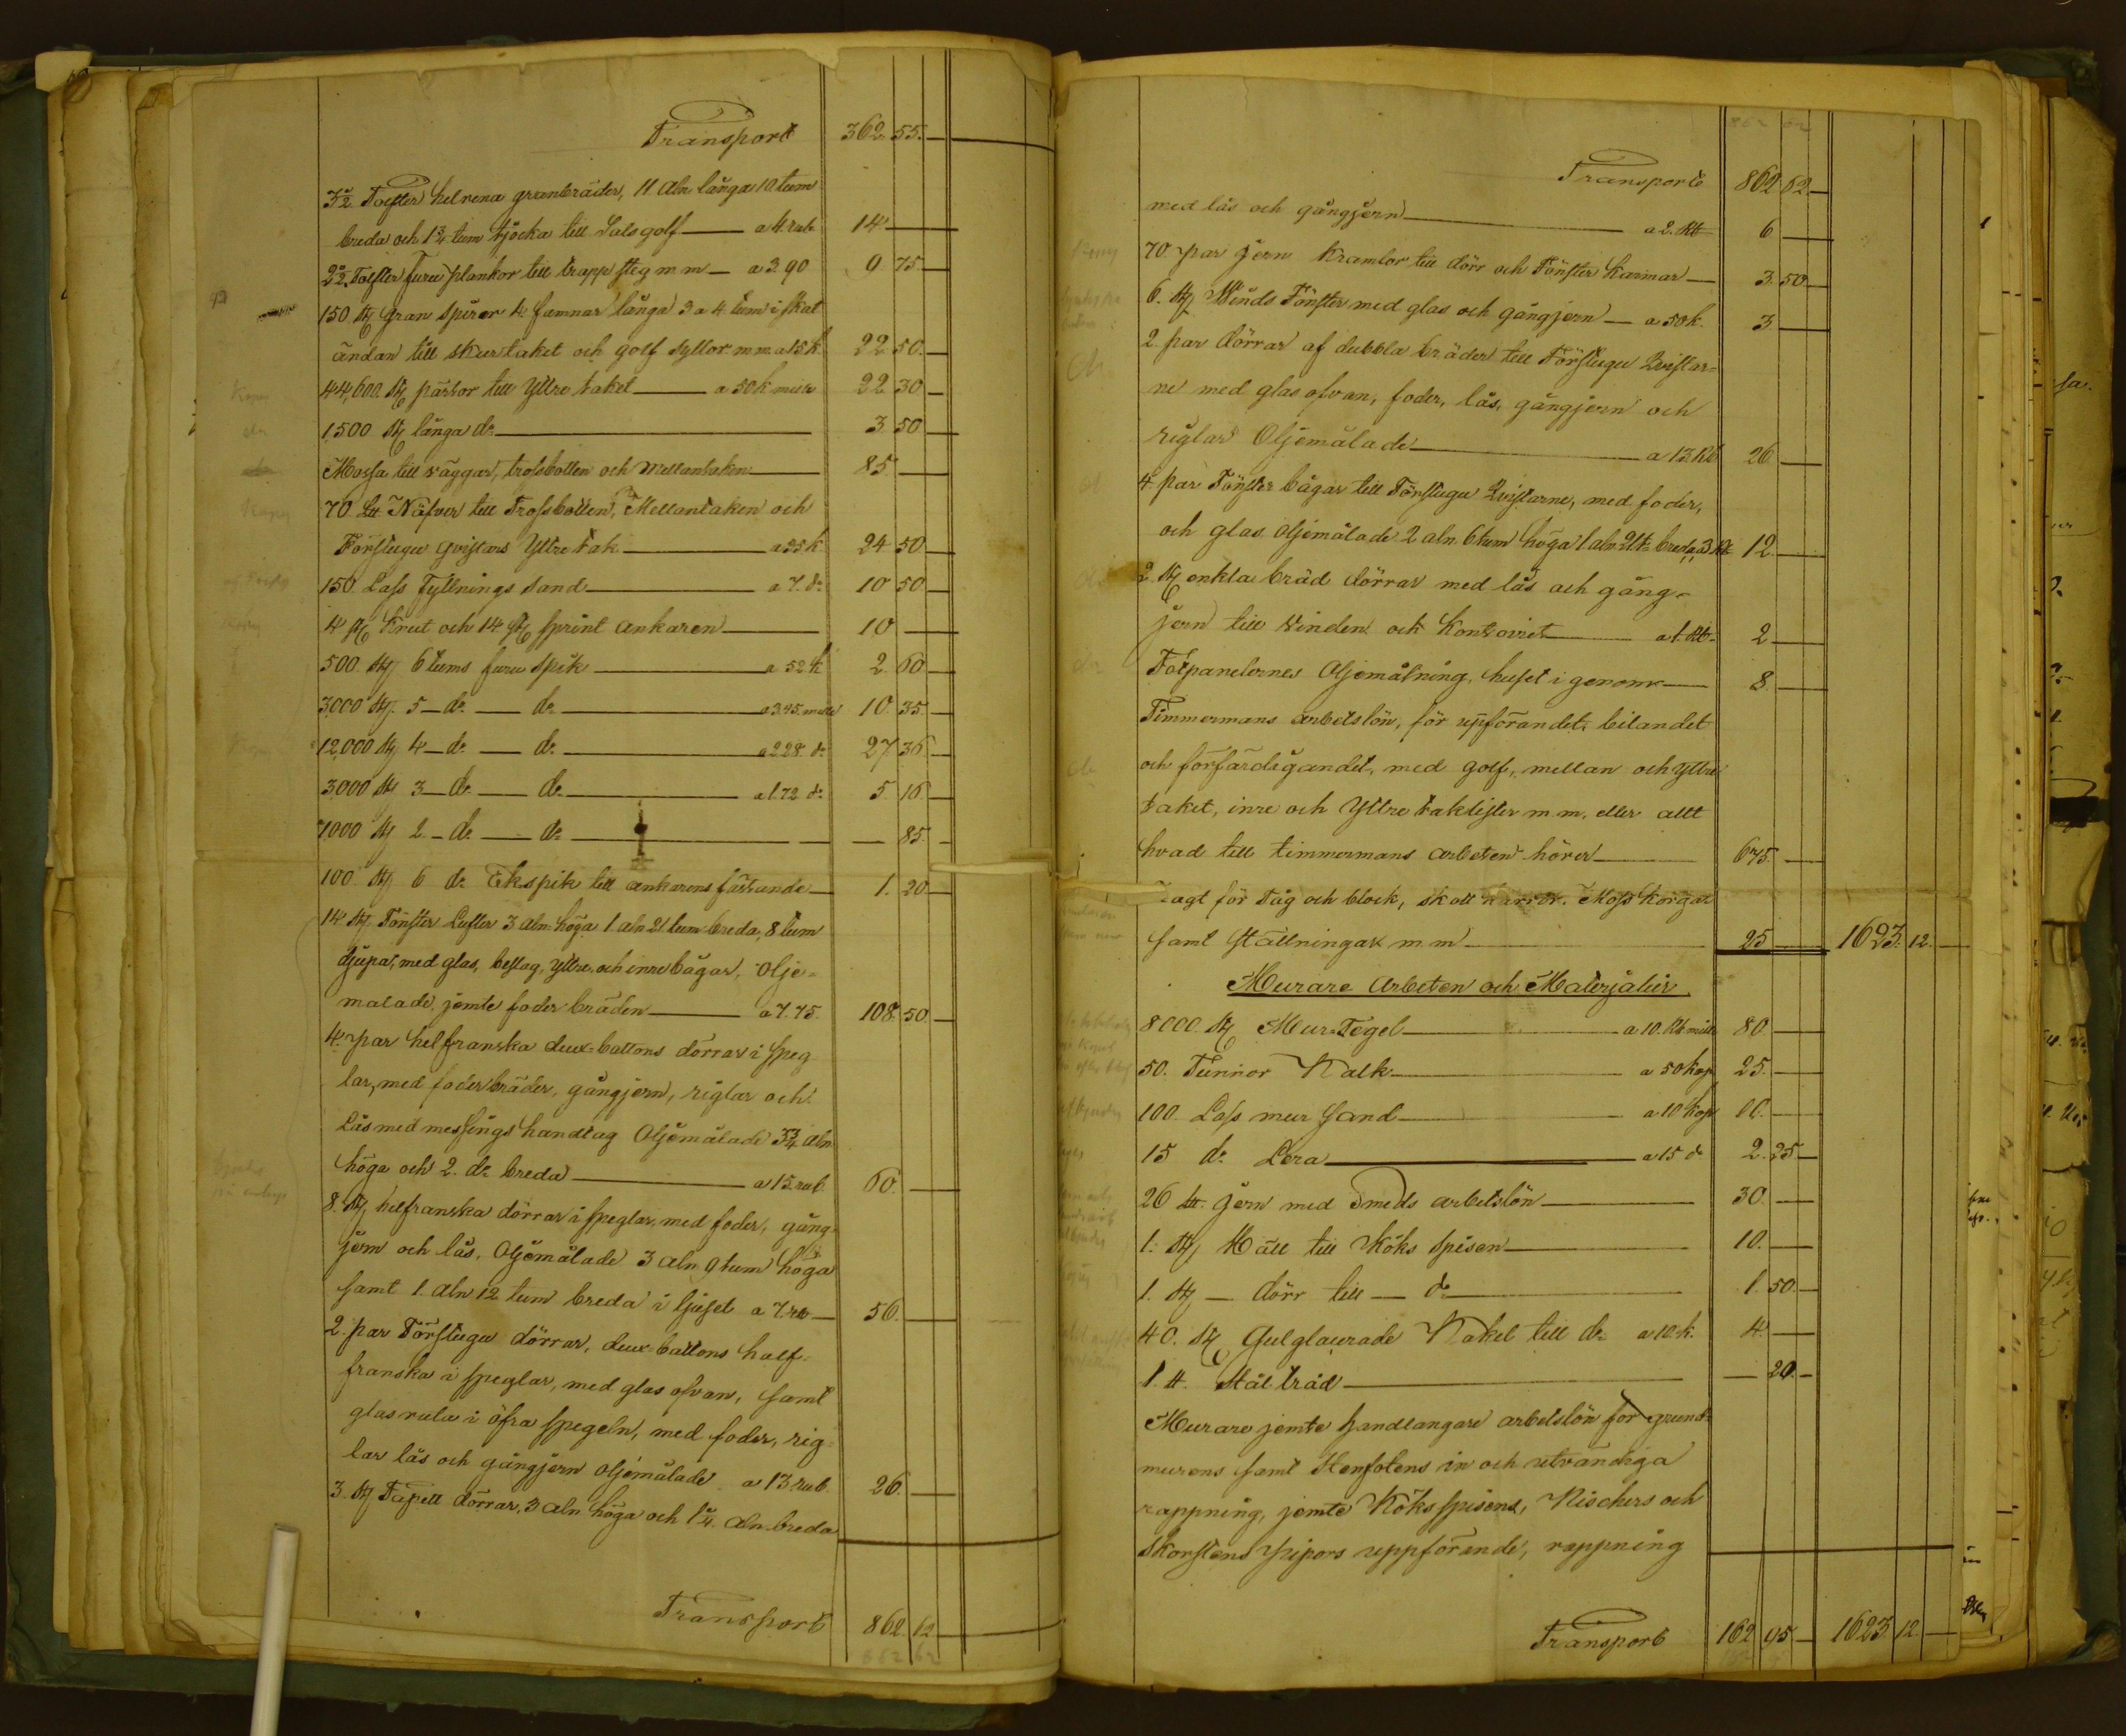 Transport 362 55.
3½ Tolfter helrena granbräder, 11 aln långa 10 tum
breda och 1¾ tum tjocka till Salsgolf a 4. rub. 14
2½ Tolfter furu plankor till trapp steg m. m a 3.90 9 75
150. st gran spiror 4 famnar långa 3 a 4 tum i skat
ändan till skurtaket och golf syllor m.m. a 15 k 22 50.
44,600. st pärtor till Yttre taket a 50 k. mille 22 30
1,500 st långa do 3. 50
Mossa till väggar, trossbotten och Mellantaken 85
70 L℔ Näfver till Trossbotten, Mellantaken och
Förstugu qvistars Yttre tak a 35 k 24 50
150. Lass Fyllnings sand a 7. do 10 50
4 st Krut och 14 st sprint ankaren 10
500. st 6 tums furu spik a 52 k 2. 60
3,000 st. 5 do do a 3.45. mille 10. 35.
12,000 st 4 do do a 2.28. do 27 36
3,000 st 3 do do a 1.72 do 5 16
1,000 st 2 do do 85.
100. st 6 do Ekspik till ankarens fästande 1. 20
14 st Fönster Lufter 3 aln höga 1 aln 21 tum breda, 8 tum
djupa, med glas, beslag, yttre och inre bågar, olje-
malade jemte foder bräden a 7.75. 108. 50.
4. par helfranska deux-battons dörrar i speg
lar, med foderbräder, gångjern, riglar och
Lås med messings handtag Oljemålade 3¾ aln
höga och 2. do breda a 15. rub 60.
8. st helfranska dörrar i speglar, med foder, gång-
jern och lås, Oljemålade 3 aln 9 tum höga
samt 1. aln 12 tum breda i ljuset a 7. rb 56.
2. par Förstugu dörrar, deux-battons half-
franska i speglar, med glas ofvan, samt
glasruta i öfra spegeln, med foder, rig-
lar lås och gångjern oljemålade a 13 rub. 26.
3. st Tapett dörrar, 3 aln höga och 1¼ aln breda
Transport 862. 62
862 62
Transport 862 62
med lås och gångjern a 2. Rb 6
70 par jern kramlor till dörr och Fönster karmar 3. 50
6. st Vinds Fönster med glas och gångjern a 50 k. 3
2 par dörrar af dubbla bräder till Förstugu Qvistar-
ne med glas ofvan, foder, lås, gångjern och
riglar Oljemålade a 13 Rb 26
4 par Fönster bågar till Förstugu Qvistarne, med foder,
och glas oljemålade 2 aln 6 tum höga 1 aln 21 t. breda, a 3 Rb 12
2 st enkla bräd dörrar med lås och gång-
jern till vinden och kontoret a 1. Rb 2
Fotpanelernes Oljemålning, huset i genom 8.
Timmermans arbetslön, för uppförandet, bilandet
och förfärdigandet, med golf, mellan och Yttre
taket, inre och Yttre taklister m. m. eller allt
hvad till timmermans arbeten hörer 675.
Lagt för Tåg och block, skott kärror, Moss korgar
samt ställningar m. m 25 1623. 12.
Murare Arbeten och Materjalier
8000. st Mur-Tegel a 10. Rb mille 80
50. Tunnor Kalk a 50 kop 25.
100. Lass mur sand a 10 kop 10.
15 do Lera a 15 do 2. 25
26 L℔ jern med Smeds arbetslön 30.
1. st Häll till Köks spisen 10.
1. st dörr till do 1. 50.
40. st Gulglaurade Kakel till do a 10. k. 4.
1. ℔ Stål tråd 20.
Murare jemte handtangare arbetslön för grund-
murens samt Stenfotens in och utvändiga
rappning, jemte Köksspisens, Nischers och
Skorstens pipors uppförande, rappning
Transport 162 95 1623. 12.